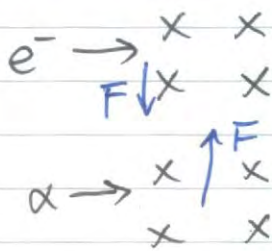 e⁻ → × ×
F ↓ × ×
↑ F
α → × ×
× ×